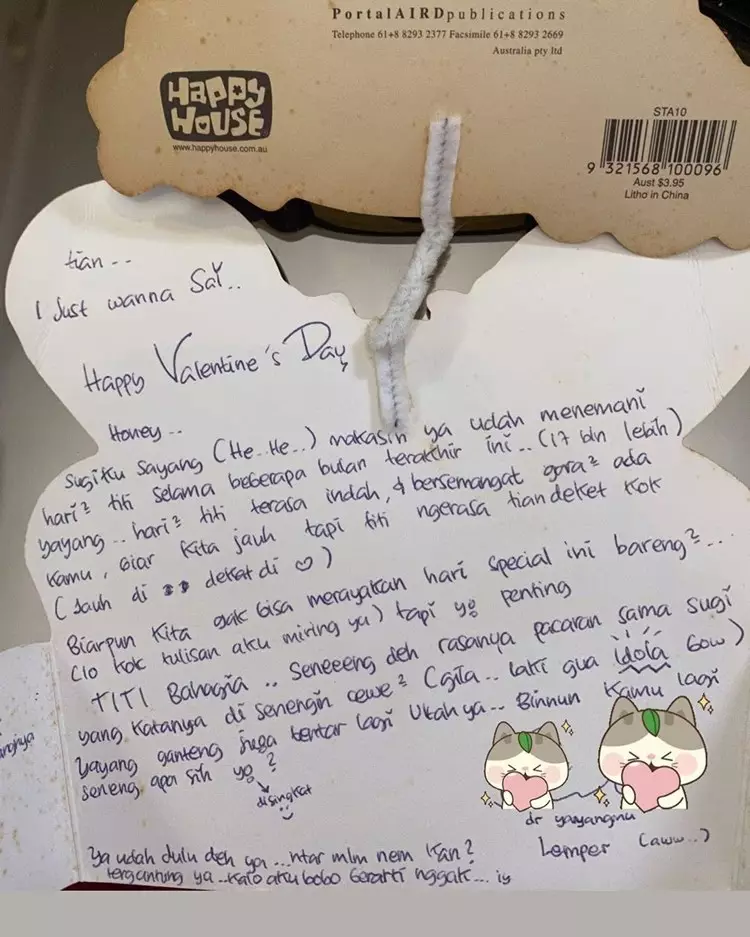 PortalAIRDpublications
Telephone 61+8 8293 2377 Facsimile 61+8 8293 2669
Australia pty ltd
HAPPY
HOUSE
www.happyhouse.com.au
STA10
9 321568 100096
Aust $3.95
Litho in China
tian --
I Just wanna Say..
Happy Valentine's Day,
Honey --
Sugiku Sayang (He..He..) makasih ya udah menemani
hari² titi selama beberapa bulan terakhir ini.. (17 bln lebih)
yayang .. hari² titi terasa indah, & bersemangat gara² ada
kamu, Biar kita jauh tapi titi ngerasa tian deket kok
(Jauh di dekat di ♡)
Biarpun kita gak bisa merayakan hari special ini bareng²...
(lo kok tulisan aku miring ya) tapi yg penting
TITI Bahagia .. Seneeeng deh rasanya pacaran sama sugi
yang katanya di senengin cewe² (gila.. laki gua idola Bow)
Yayang ganteng juga bentar lagi Ultah ya.. Binnun kamu lagi
seneng apa sih yg?
disingkat
dr yayangmu
Lemper (aww..)
Ya udah dulu deh ya ...ntar mlm nem kan?
tergantung ya ..kalo aku bobo berarti nggak... iy